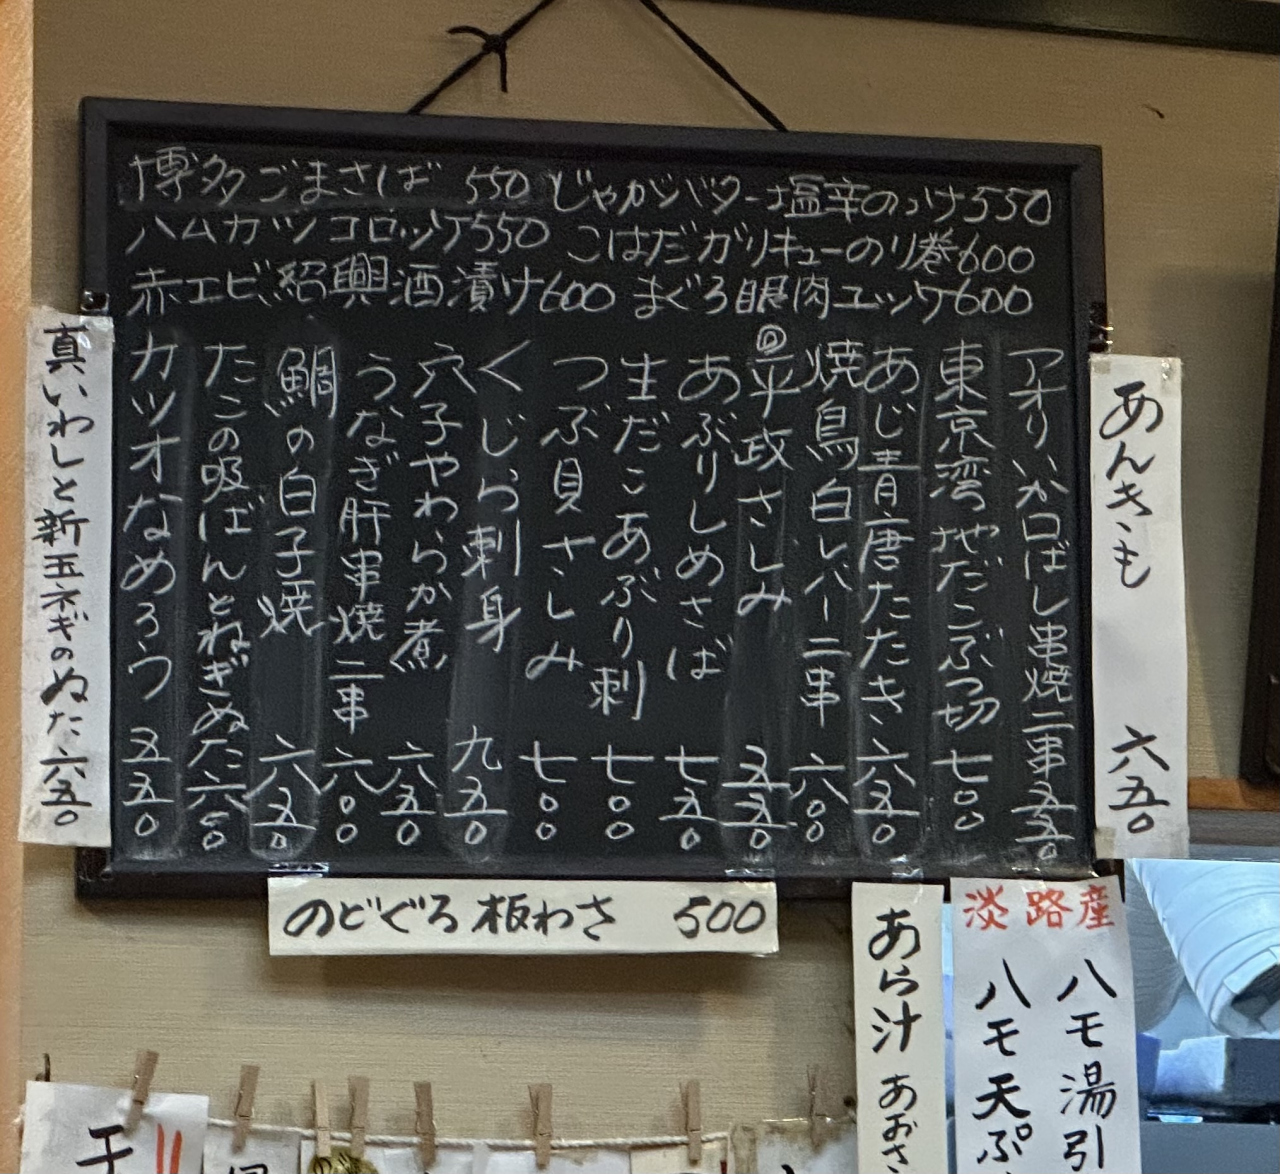 博多ごまさば 550
じゃがバター塩辛のっけ550
ハムカツコロッケ550
こはだガリキューのり巻600
赤エビ紹興酒漬け600
まぐろ眼肉ユッケ600
アオリいか口ばし串焼二串 五五〇
東京湾地だこぶつ切 七〇〇
あじ青唐たたき 六五〇
焼鳥白レバー二串 六〇〇
平政さしみ 五五〇
あぶりしめさば 七五〇
生だこあぶり刺 七〇〇
つぶ貝さしみ 七〇〇
くじら刺身 九五〇
穴子やわらか煮 六五〇
うなぎ肝串焼二串 六〇〇
鯛の白子焼 六五〇
たこの吸ばんとねぎぬた 六〇〇
カツオなめろう 五五〇
あんきも 六五〇
真いわしと新玉ネギのぬた 六五〇
のどぐろ板わさ 500
淡路産
ハモ湯引
ハモ天ぷ
あら汁 あおさ